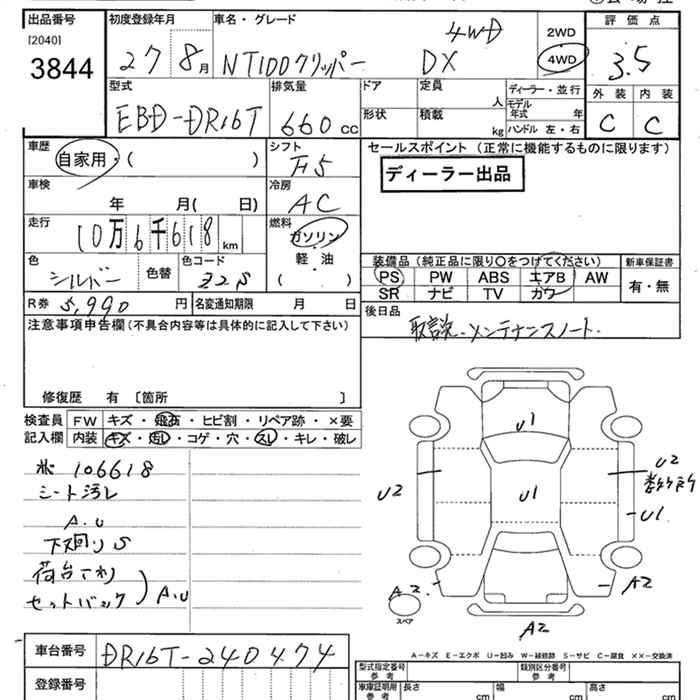 出品番号 初度登録年月 車名・グレード 評価点
[2040]
3844
27 8月 NT100クリッパー DX 4WD
2WD
4WD
3.5
外装 内装
C C
型式 排気量 ドア 定員 人 ディーラー・並行
EBD-DR16T 660cc
形状 積載 kg
モデル年式 年
ハンドル 左・右
車歴 シフト セールスポイント (正常に機能するものに限ります)
自家用・( ) F5
ディーラー出品
車検 冷房
年 月( 日) AC
走行 燃料
10万6千618km ガソリン
軽・油
( )
色 色替 色コード
シルバー Z2S
装備品 (純正品に限り○をつけてください) 新車保証書
PS PW ABS エアB AW 有・無
SR ナビ TV カワ
R券 5,990円 名変通知期限 月 日
後日品
取説、メンテナンスノート
注意事項申告欄 (不具合内容等は具体的に記入して下さい)
修復歴 有 〔箇所 〕
検査員 FW キズ・飛石・ヒビ割・リペア跡・×要
記入欄 内装 キズ・汚し・コゲ・穴・スレ・キレ・破レ
106618
シート汚レ
A.U
下廻りS
荷台サビ
セットバック
A.U
U1
U2 U1 U2
U1
A2 A2
スペア
A2
A-キズ E-エクボ U-凹み W-補修跡 S-サビ C-腐食 ××-交換済
車台番号 DR16T-240474
登録番号
型式指定番号 参考 類別区分番号 参考
車庫証明用 参考 長さ cm 幅 cm 高さ cm